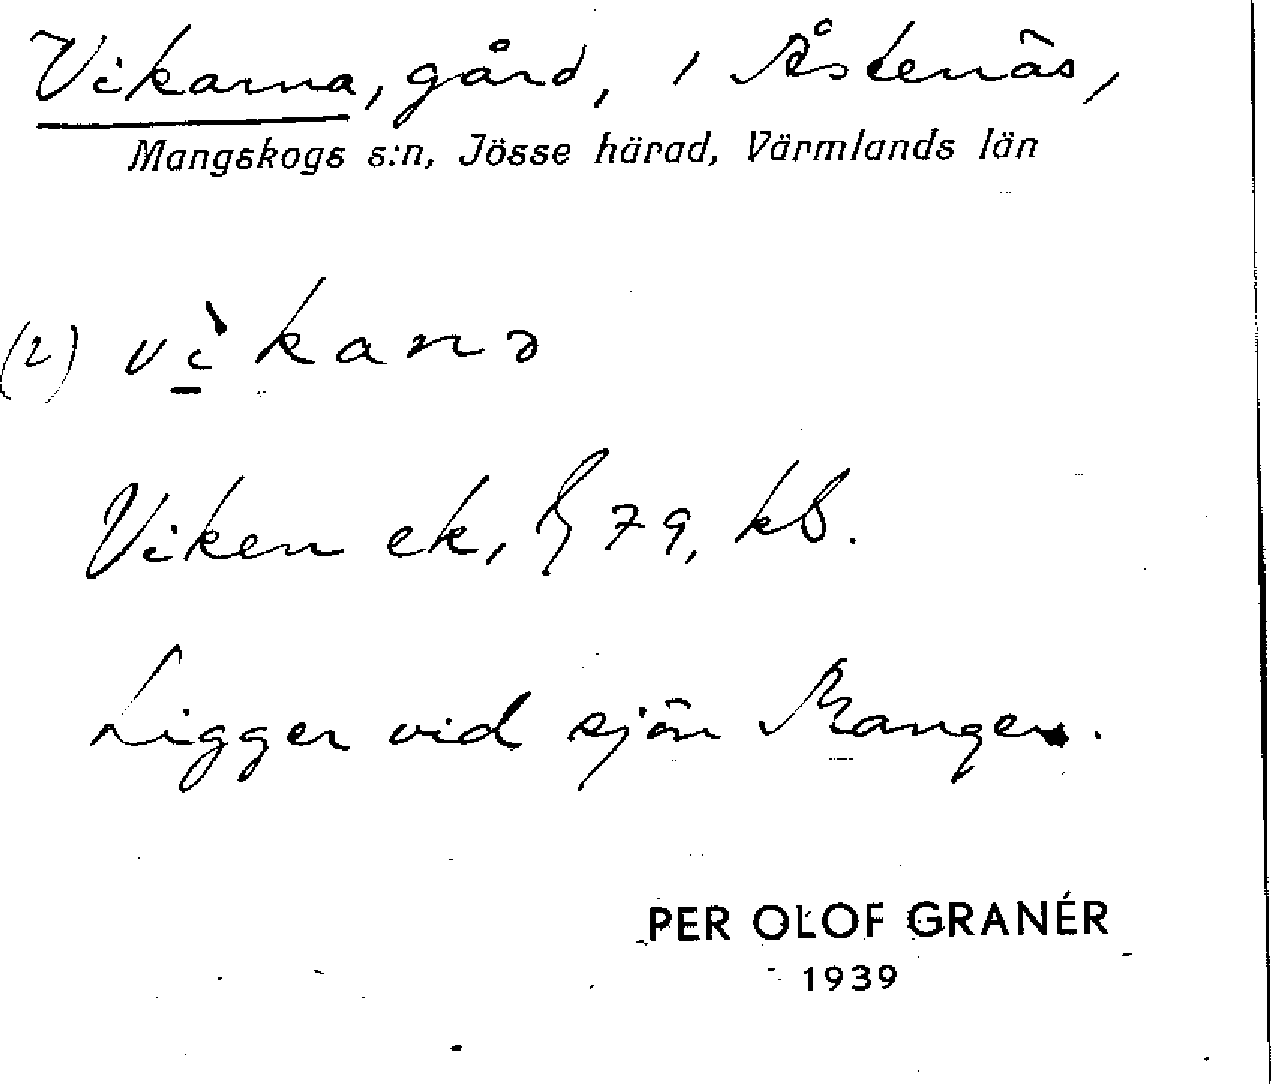 Vikarna, gård, i Åstenäs,
Mangskogs s:n, Jösse härad, Värmlands län
(2) vì̠kanə
Viken ek, § 79, kb.
Ligger vid sjön Mangen.
PER OLOF GRANÉR
1939